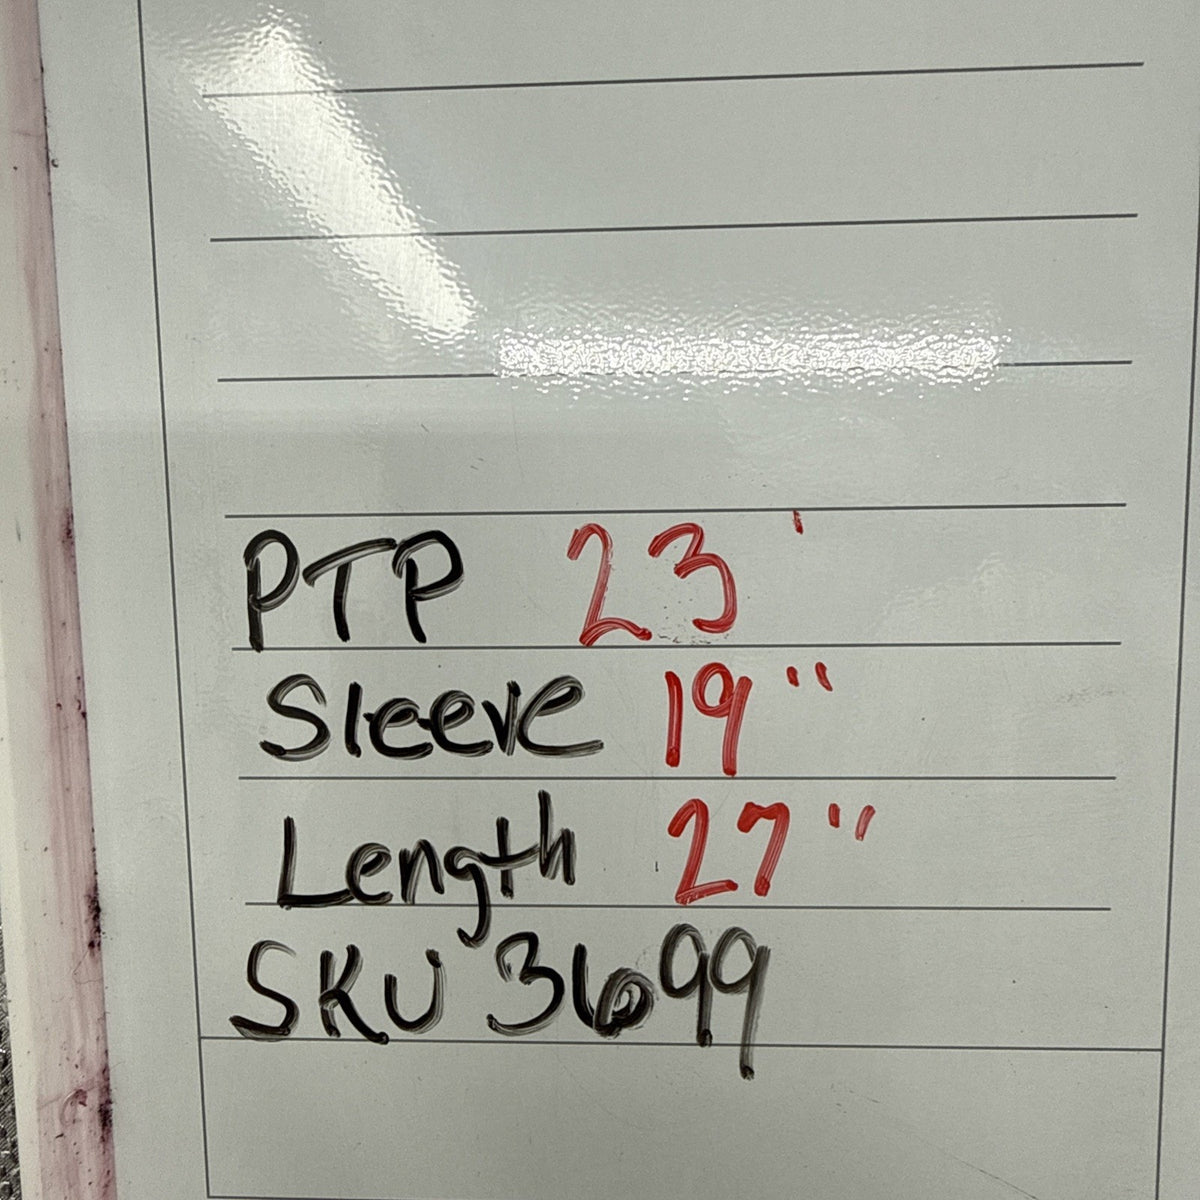 PTP 23'
Sleeve 19"
Length 27"
SKU 3699